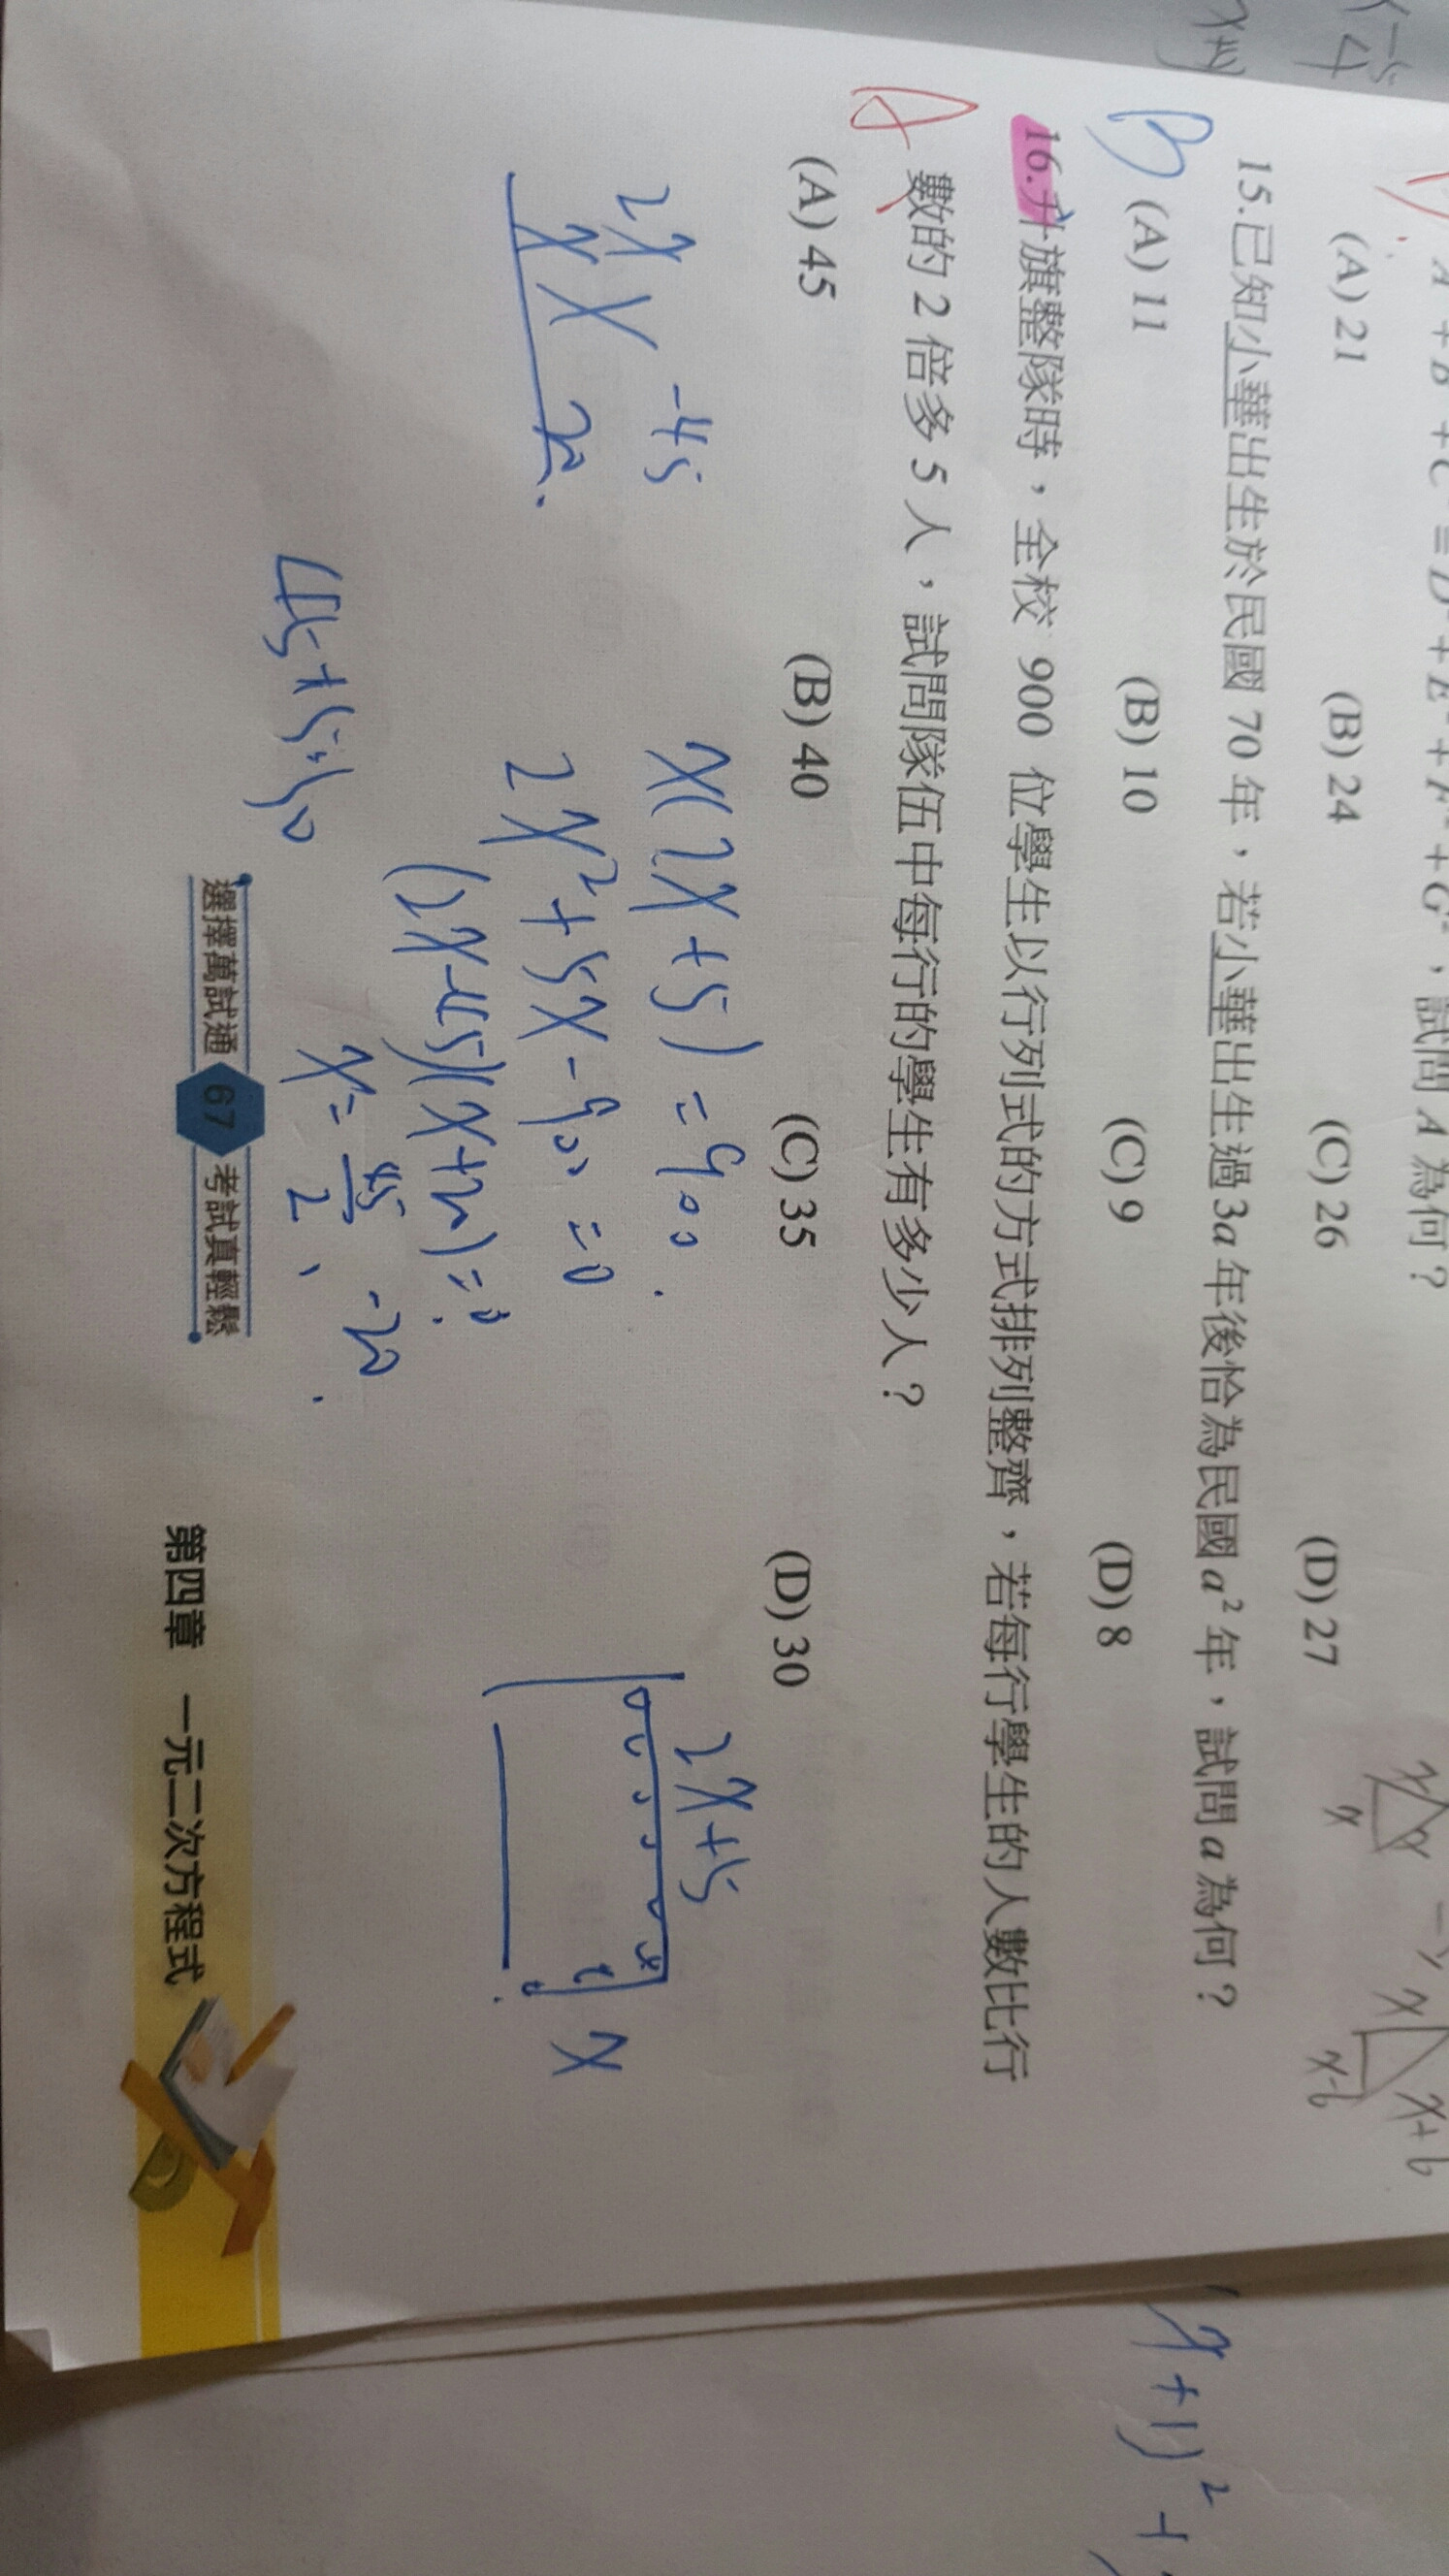 (A) 21 (B) 24 (C) 26 (D) 27
15.已知小華出生於民國 70 年，若小華出生過3a 年後恰為民國a²年，試問a為何？
B (A) 11 (B) 10 (C) 9 (D) 8
16.升旗整隊時，全校 900 位學生以行列式的方式排列整齊，若每行學生的人數比行
數的 2 倍多 5 人，試問隊伍中每行的學生有多少人？
A
(A) 45 (B) 40 (C) 35 (D) 30
2x -45
x 20
x(2x+5)=900
2x²+5x-900=0
(2x-45)(x+20)=0
x=45/2、-20
2x+5
x
選擇萬試通 67 考試真輕鬆
第四章 一元二次方程式